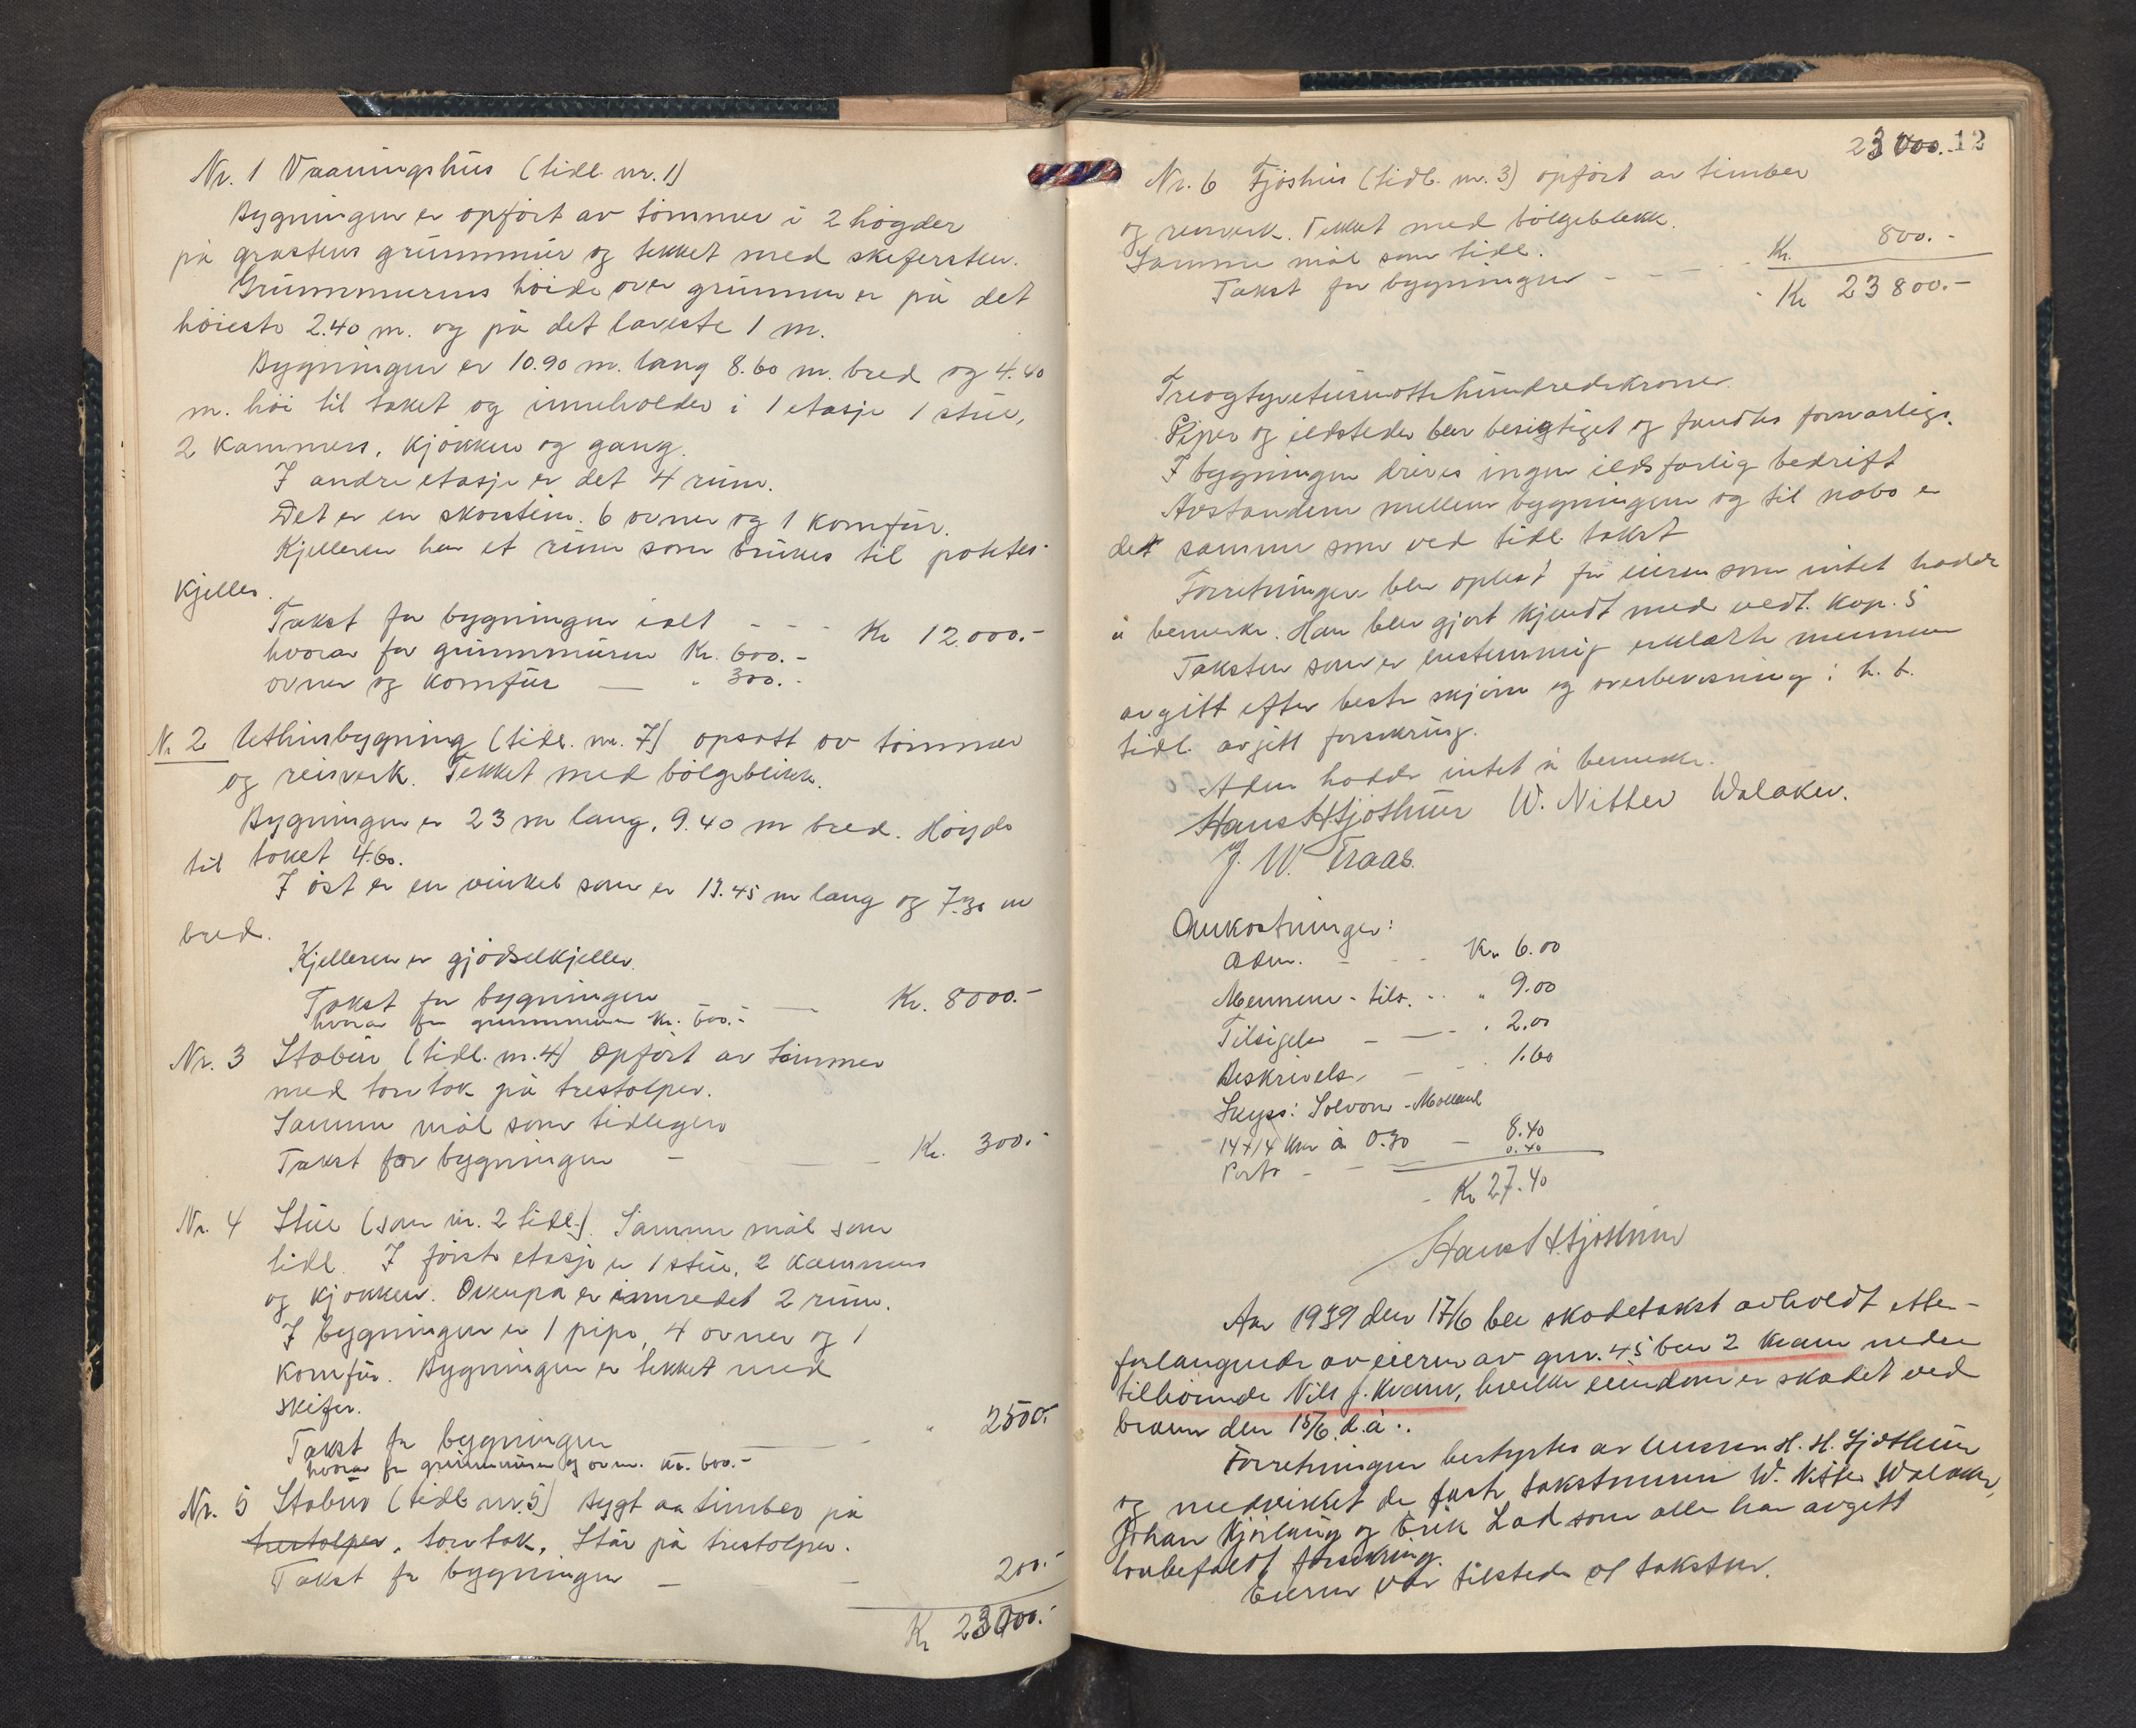 Nr. 1 Vaaningshus (tidl. nr. 1)
Bygningen er opført av tømmer i 2 høgder
på gråstens grunnmur og tekket med skifersten.
Grunnmurens høide over grunnen er på det
høieste 2.40 m. og på det laveste 1 m.
Bygningen er 10.90 m. lang 8.60 m. bred og 4.40
m. høi til taket og inneholder i 1 etasje 1 stue,
2 kammers, kjøkken og gang.
I andre etasje er det 4 rum.
Det er en skorstein. 6 ovner og 1 komfur.
Kjelleren har et rum som brukes til potetes
kjeller.
Takst for bygningen ialt - - - Kr 12.000.-
hvorav for grunnmuren Kr. 600.-
ovner og komfur — " 300.-
Nr. 2 Uthusbygning (tidl. nr. 7) opsatt av tømmer
og reisverk. Tekket med bølgeblikk.
Bygningen er 23 m lang, 9.40 m bred. Høgde
til taket 4.60.
I øst er en vinkel som er 13.45 m lang og 7.30 m
bred.
Kjelleren er gjødselkjeller.
Takst for bygningen - - — Kr. 8000.-
hvorav for grunnmuren Kr. 600.-
Nr. 3 Stabur (tidl. nr. 4) Opført av tømmer
med torvtak på trestolper.
Samme mål som tidligere
Takst for bygningen - - - Kr. 300.-
Nr. 4 Stue (som nr. 2 tidl.). Samme mål som
tidl. I første etasje er 1 stue, 2 kammers
og kjøkken. Ovenpå er innredet 2 rum.
I bygningen er 1 pipe, 4 ovner og 1
komfur. Bygningen er tekket med
skifer.
Takst for bygningen — - " 2500.-
hvorav for grunnmuren og ovner Kr. 600.-
Nr. 5 Stabur (tidl. nr. 5) Bygt av timber på
trestolper, torvtak, Står på trestolper.
Takst for bygningen — - 200.-
Kr 23000.-
23000.- 12
Nr. 6 Fjøshus (tidl. nr. 3) opført av timber
og reisverk. Tekket med bølgeblekk.
Samme mål som tidl.
Takst for bygningen - - - - Kr. 800.-
Kr 23800.-
Treogtyvetusenottehundredekroner.
Piper og ildsteder blev besigtiget og fandtes forsvarlige.
I bygningen drives ingen ildsfarlig bedrift
Avstandene mellem bygningene og til nabo er
det samme som ved tidl. takst
Forretningen blev oplest for eieren som intet hadde
å bemerke. Han blev gjort kjendt med vedt. kap. 5
Taksten som er enstemmig erklærte mennene
avgitt efter beste skjønn og overbevisning i h. t.
tidl. avgitt forsikring.
Adm hadde intet å bemerke.
Hans H Hjøsthun W. Nitter Walaker.
J. W. Eraas.
Omkostninger:
Adm. - - - Kr. 6.00
Mennene - tils. - . " 9.00
Tilsigelse - — - " 2.00
Beskrivels. — - " 1.60
Skyss: Solvorn - Molland
14+14 km à 0.30 — 8.40
Porto - - — 0.40
- Kr 27.40
Hans H. Hjøsthun
Aar 1939 den 17/6 ble skadetakst avholdt etter-
forlangende av eieren av gnr. 45 bnr 2 Kvam nedre
tilhørende Nils J. Kvam, hvilke eiendom er skadet ved
brann den 15/6 d.å..
Forretningen bestyrtes av H. H. Hjøsthun
og medvirket de faste takstmenn W. Nitter Walaker,
Johan Kjørlaug og Erik Lad som alle har avgitt
lovbefalt forsikring.
Eieren var tilstede v/ taksten.